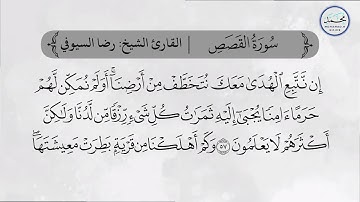 سُورَةُ القَصَصِ | القارئ الشيخ: رضا السيوفي
إِن نَّتَّبِعِ ٱلْهُدَىٰ مَعَكَ نُتَخَطَّفْ مِنْ أَرْضِنَآ ۚ أَوَلَمْ نُمَكِّن لَّهُمْ
حَرَمًا ءَامِنًا يُجْبَىٰٓ إِلَيْهِ ثَمَرَٰتُ كُلِّ شَىْءٍ رِّزْقًا مِّن لَّدُنَّا وَلَٰكِنَّ
أَكْثَرَهُمْ لَا يَعْلَمُونَ ٥٧ وَكَمْ أَهْلَكْنَا مِن قَرْيَةٍۭ بَطِرَتْ مَعِيشَتَهَا ۖ